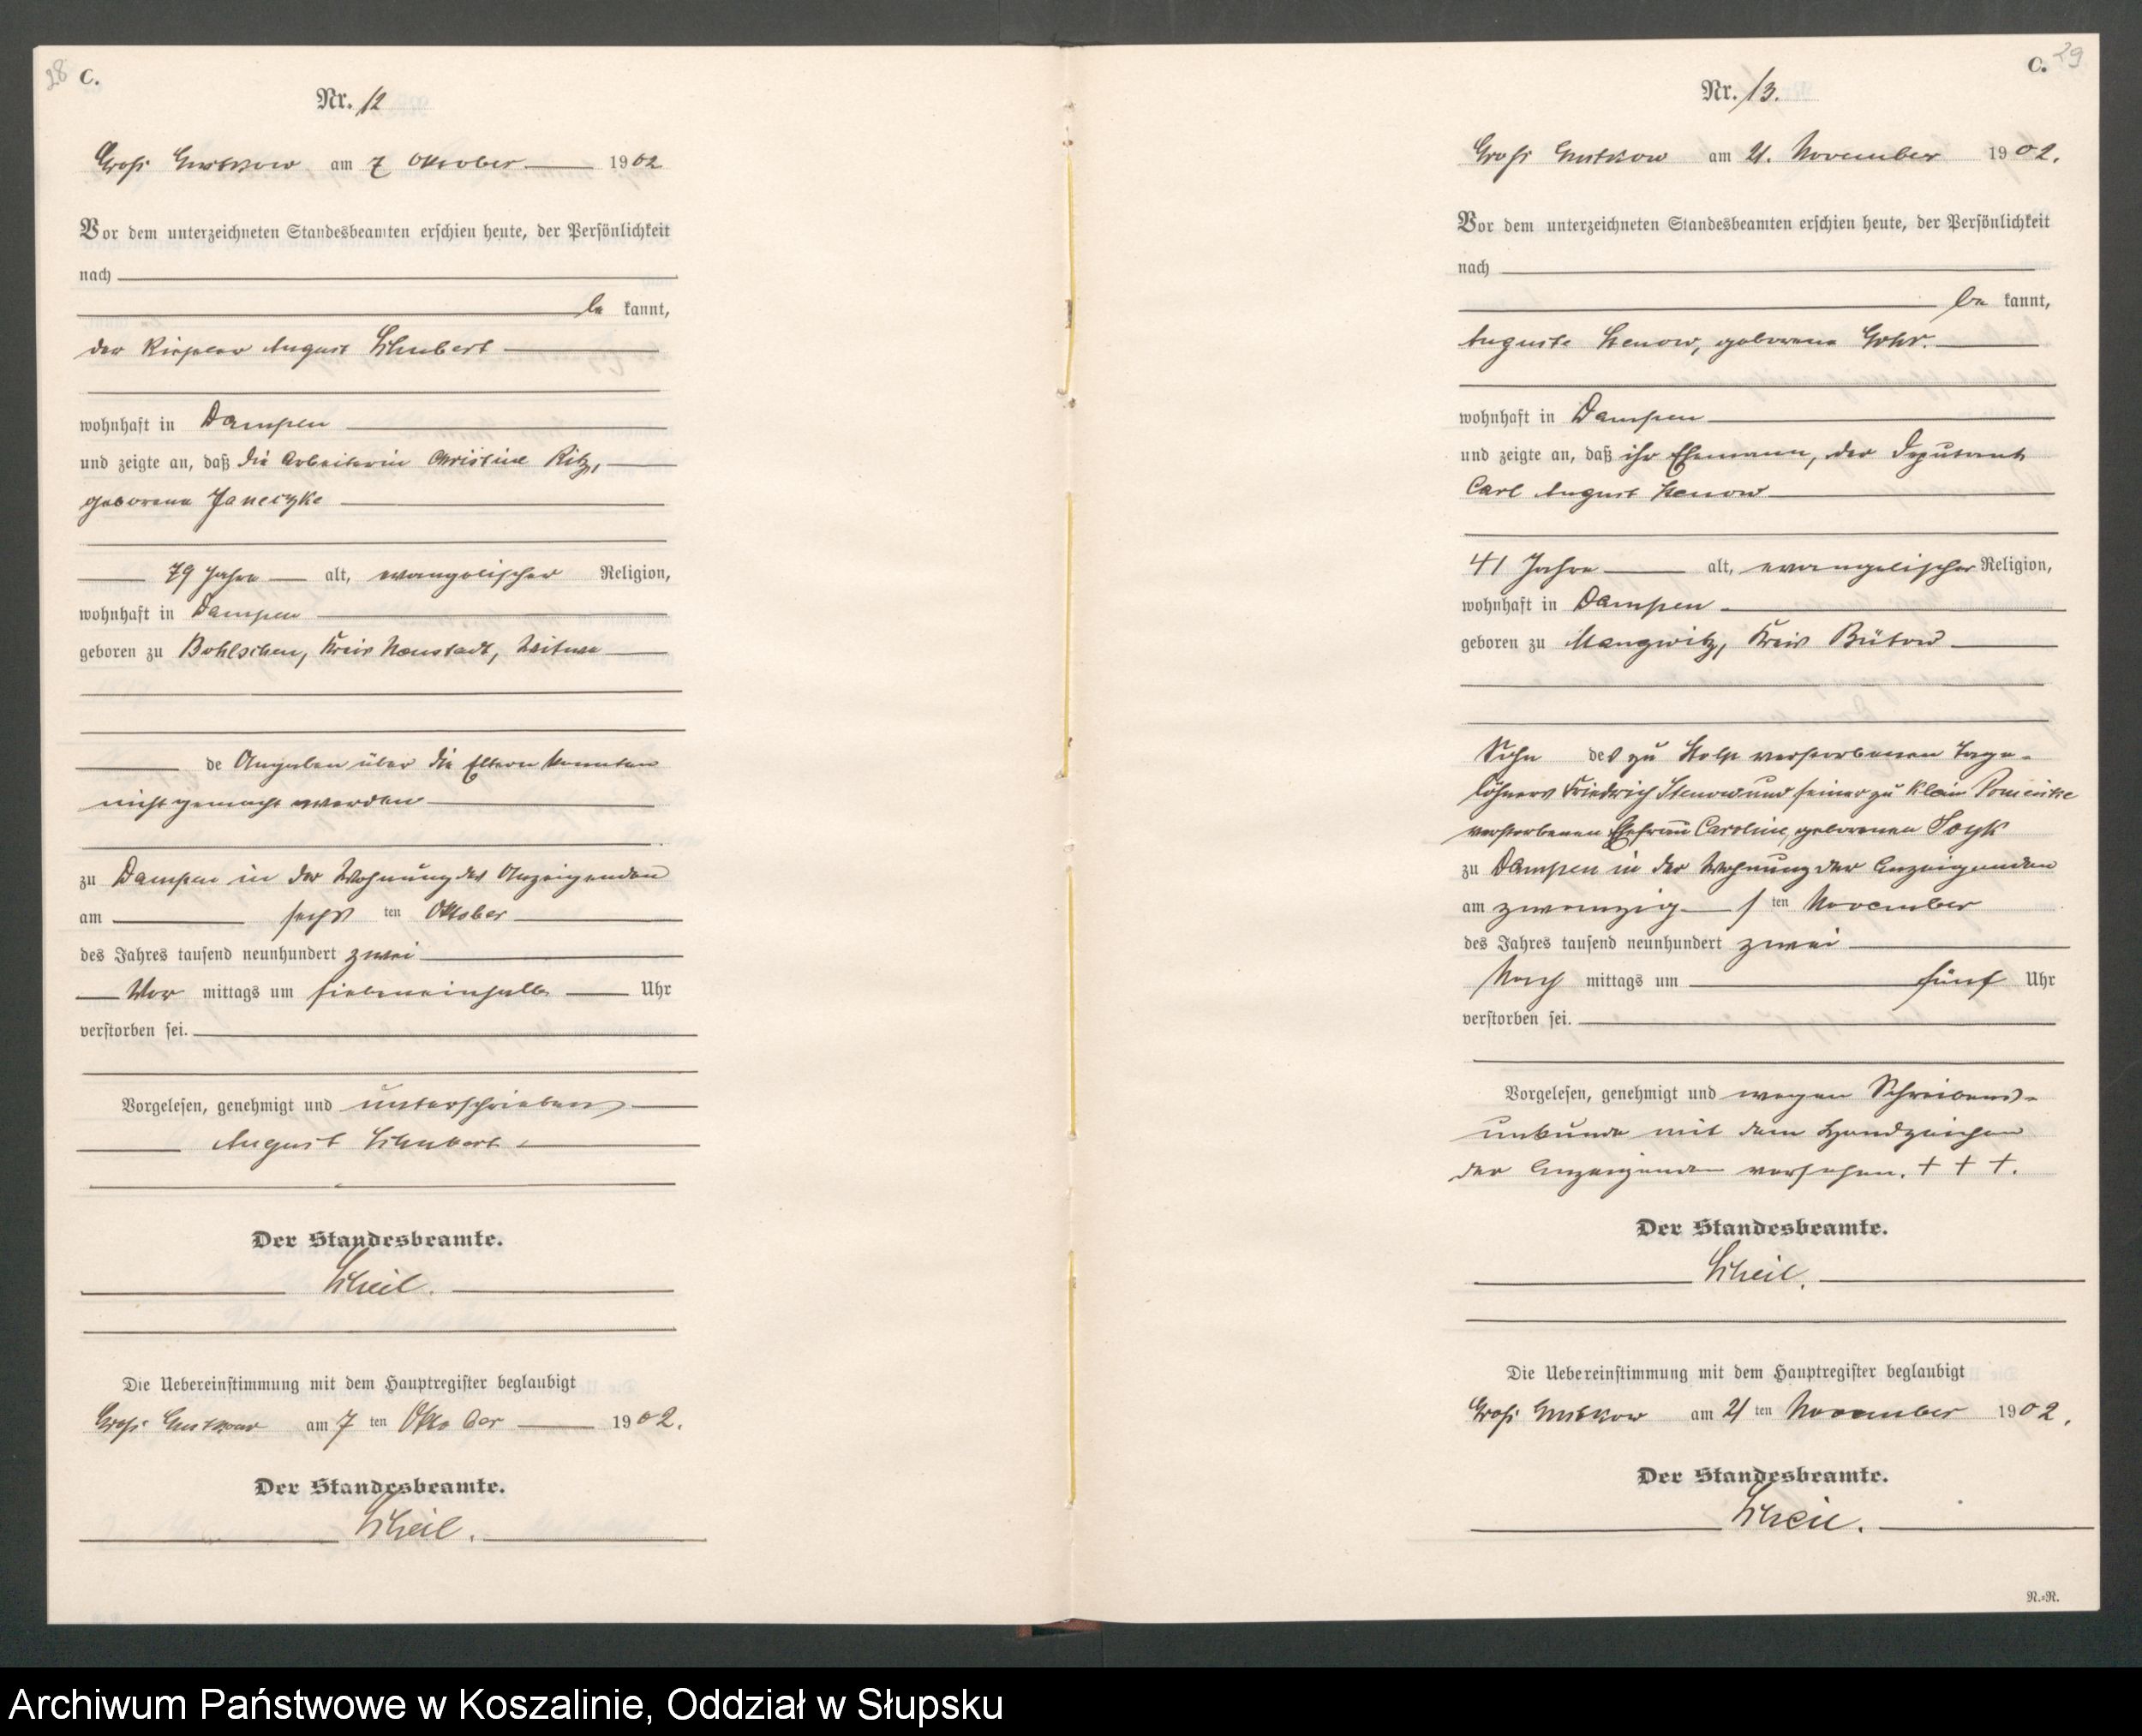 28 C.
Nr. 12
Groß Gustkow am 7 Oktober 1902
Vor dem unterzeichneten Standesbeamten erschien heute, der Persönlichkeit
nach
be kannt,
der August Schubert
wohnhaft in Dampen
und zeigte an, daß die Arbeiterin Christine Ritz,
geborene Janeczke
79 Jahre alt, evangelischer Religion,
wohnhaft in Dampen
geboren zu Bohlschen, Kreis Neustadt, Witwe
de Angaben über die Eltern konnten
nicht gemacht werden
zu Dampen in der Wohnung des Anzeigenden
am sechs ten Oktober
des Jahres tausend neunhundert zwei
Vor mittags um siebeneinhalb Uhr
verstorben sei.
Vorgelesen, genehmigt und unterschrieben
August Schubert
Der Standesbeamte.
Scheil.
Die Uebereinstimmung mit dem Hauptregister beglaubigt
Groß Gustkow am 7 ten Oktober 1902.
Der Standesbeamte.
Scheil.
C. 29
Nr. 13.
Groß Gustkow am 21. November 1902.
Vor dem unterzeichneten Standesbeamten erschien heute, der Persönlichkeit
nach
be kannt,
Auguste Stenow, geborene Gohr.
wohnhaft in Dampen
und zeigte an, daß ihr Ehemann, der Deputant
Carl August Stenow
41 Jahre alt, evangelischer Religion,
wohnhaft in Dampen
geboren zu Mangwitz, Kreis Bütow
Sohn des zu Stolp verstorbenen Tage-
löhners Friedrich Stenow und seiner zu Klein Pomeiske
verstorbenen Ehefrau Caroline, geborenen
zu Dampen in der Wohnung der Anzeigenden
am zwanzig s ten November
des Jahres tausend neunhundert zwei
Nach mittags um fünf Uhr
verstorben sei.
Vorgelesen, genehmigt und wegen Schreibens-
unkunde mit dem Handzeichen
der Anzeigenden versehen. + + +.
Der Standesbeamte.
Scheil.
Die Uebereinstimmung mit dem Hauptregister beglaubigt
Groß Gustkow am 21 ten November 1902.
Der Standesbeamte.
Scheil.
N.-R.
Archiwum Państwowe w Koszalinie, Oddział w Słupsku